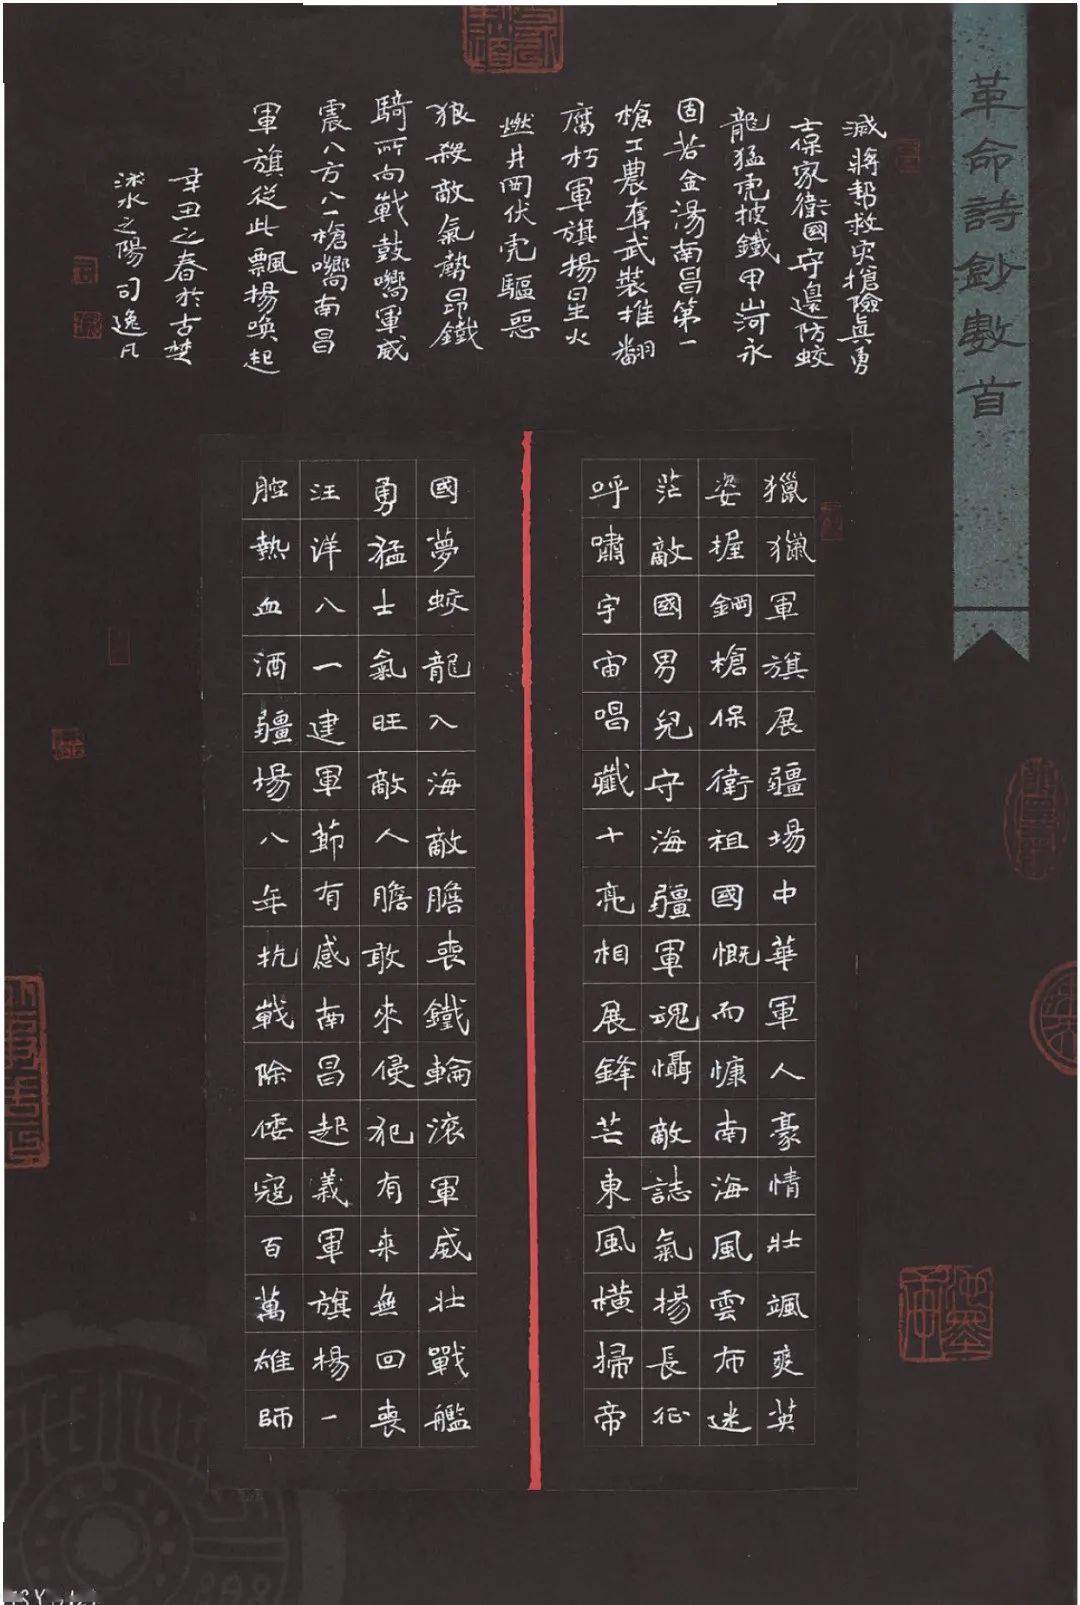 革命詩鈔數首
獵獵軍旗展疆場中華軍人豪情壯颯爽英
姿握鋼槍保衛祖國慨而慷南海風雲布迷
茫敵國男兒守海疆軍魂懾敵誌氣揚長征
呼嘯宇宙唱殲十亮相展鋒芒東風橫掃帝
國夢蛟龍入海敵膽喪鐵輪滾軍威壯戰艦
勇猛士氣旺敵人膽敢來侵犯有來無回喪
汪洋八一建軍節有感南昌起義軍旗楊一
腔熱血洒疆場八年抗戰除倭寇百萬雄師
滅蔣幫救灾搶險真勇
士保家衛國守邊防蛟
龍猛虎披鐵甲山河永
固若金湯南昌第一
槍工農奪武裝推翻
腐朽軍旗揚星火
燃井岡伏虎驅惡
狼殺敵氣勢昂鐵
騎所向戰鼓嚮軍威
震八方八一槍嚮南昌
軍旗從此飄揚喚起
辛丑之春於古楚
沭水之陽司逸凡